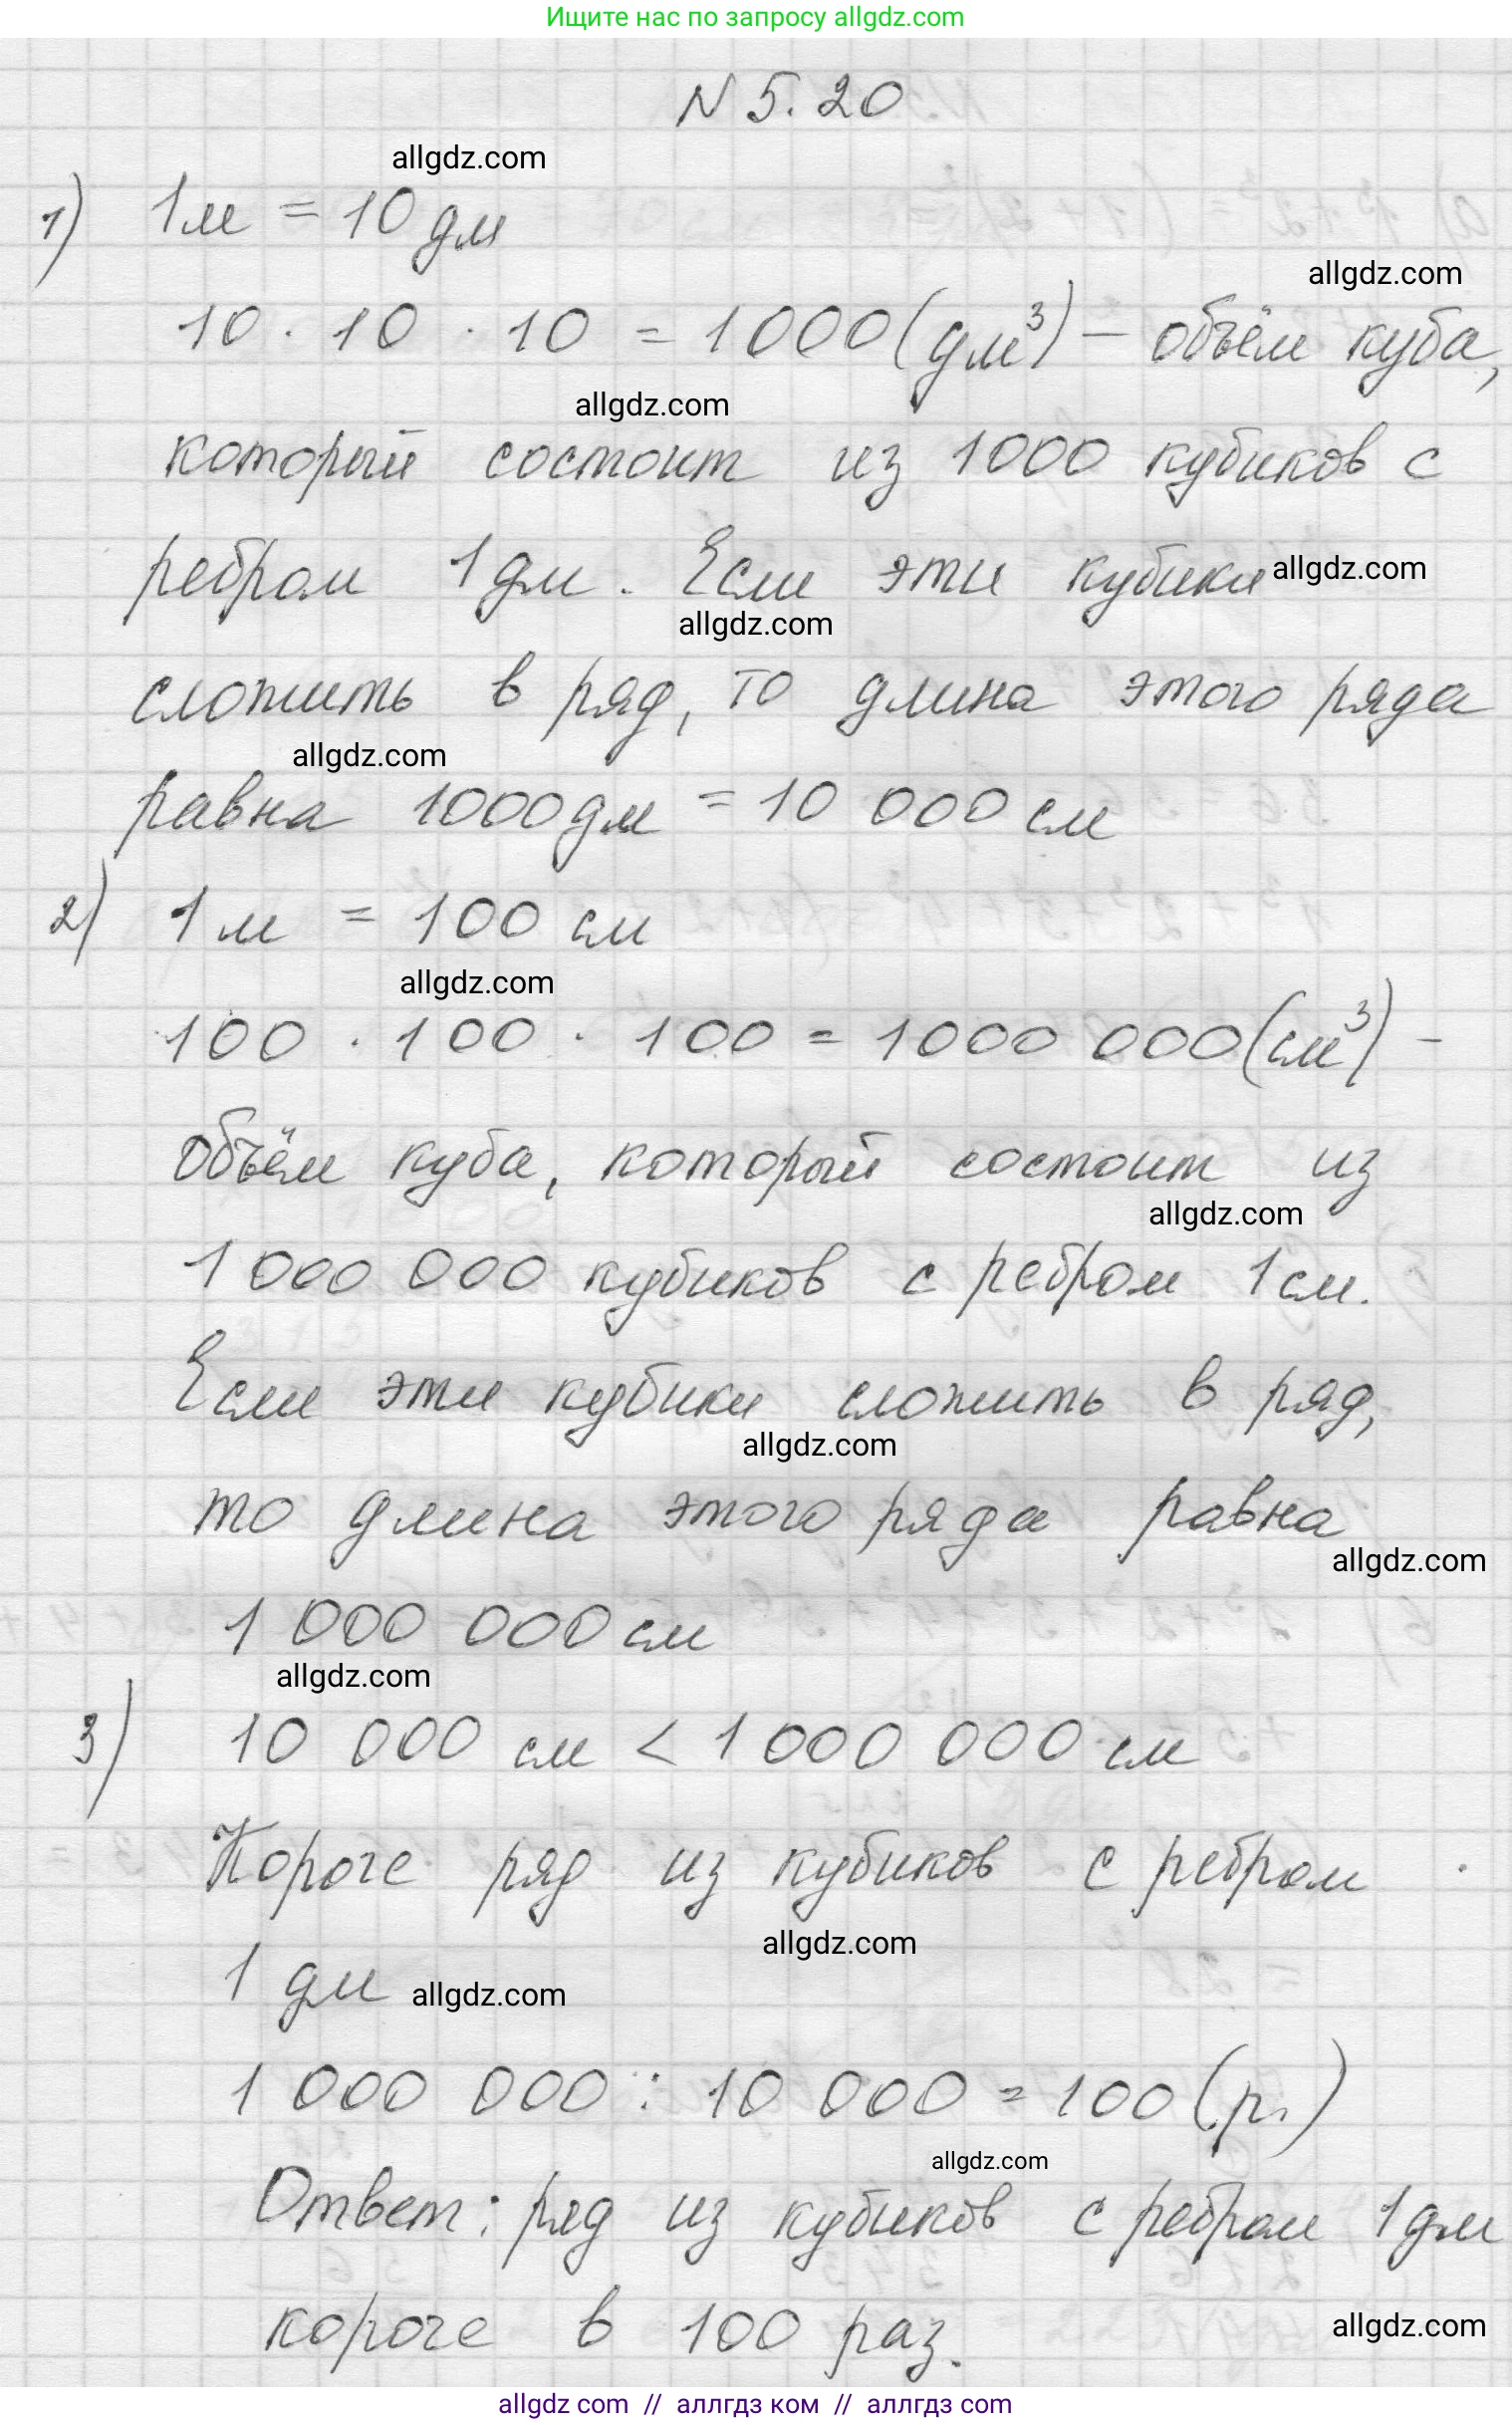 Ищите нас по запросу allgdz.com
N 5. 20
allgdz.com
1) 1м = 10 дм
allgdz.com
10 · 10 · 10 = 1000 (дм³) – объём куба,
allgdz.com
который состоит из 1000 кубиков с
ребром 1 дм. Если эти кубики allgdz.com
allgdz.com
сложить в ряд, то длина этого ряда
allgdz.com
равна 1000 дм = 10 000 см
2) 1 м = 100 см
allgdz.com
100 · 100 · 100 = 1000 000 (см³) –
объём куба, который состоит из
allgdz.com
1 000 000 кубиков с ребром 1 см.
Если эти кубики сложить в ряд,
allgdz.com
то длина этого ряда равна
allgdz.com
1 000 000 см
allgdz.com
3) 10 000 см < 1 000 000 см
Короче ряд из кубиков с ребром
allgdz.com
1 дм allgdz.com
1 000 000 : 10 000 = 100 (р.)
allgdz.com
Ответ: ряд из кубиков с ребром 1 дм
короче в 100 раз.
allgdz.com
allgdz com // аллгдз ком // аллгдз com